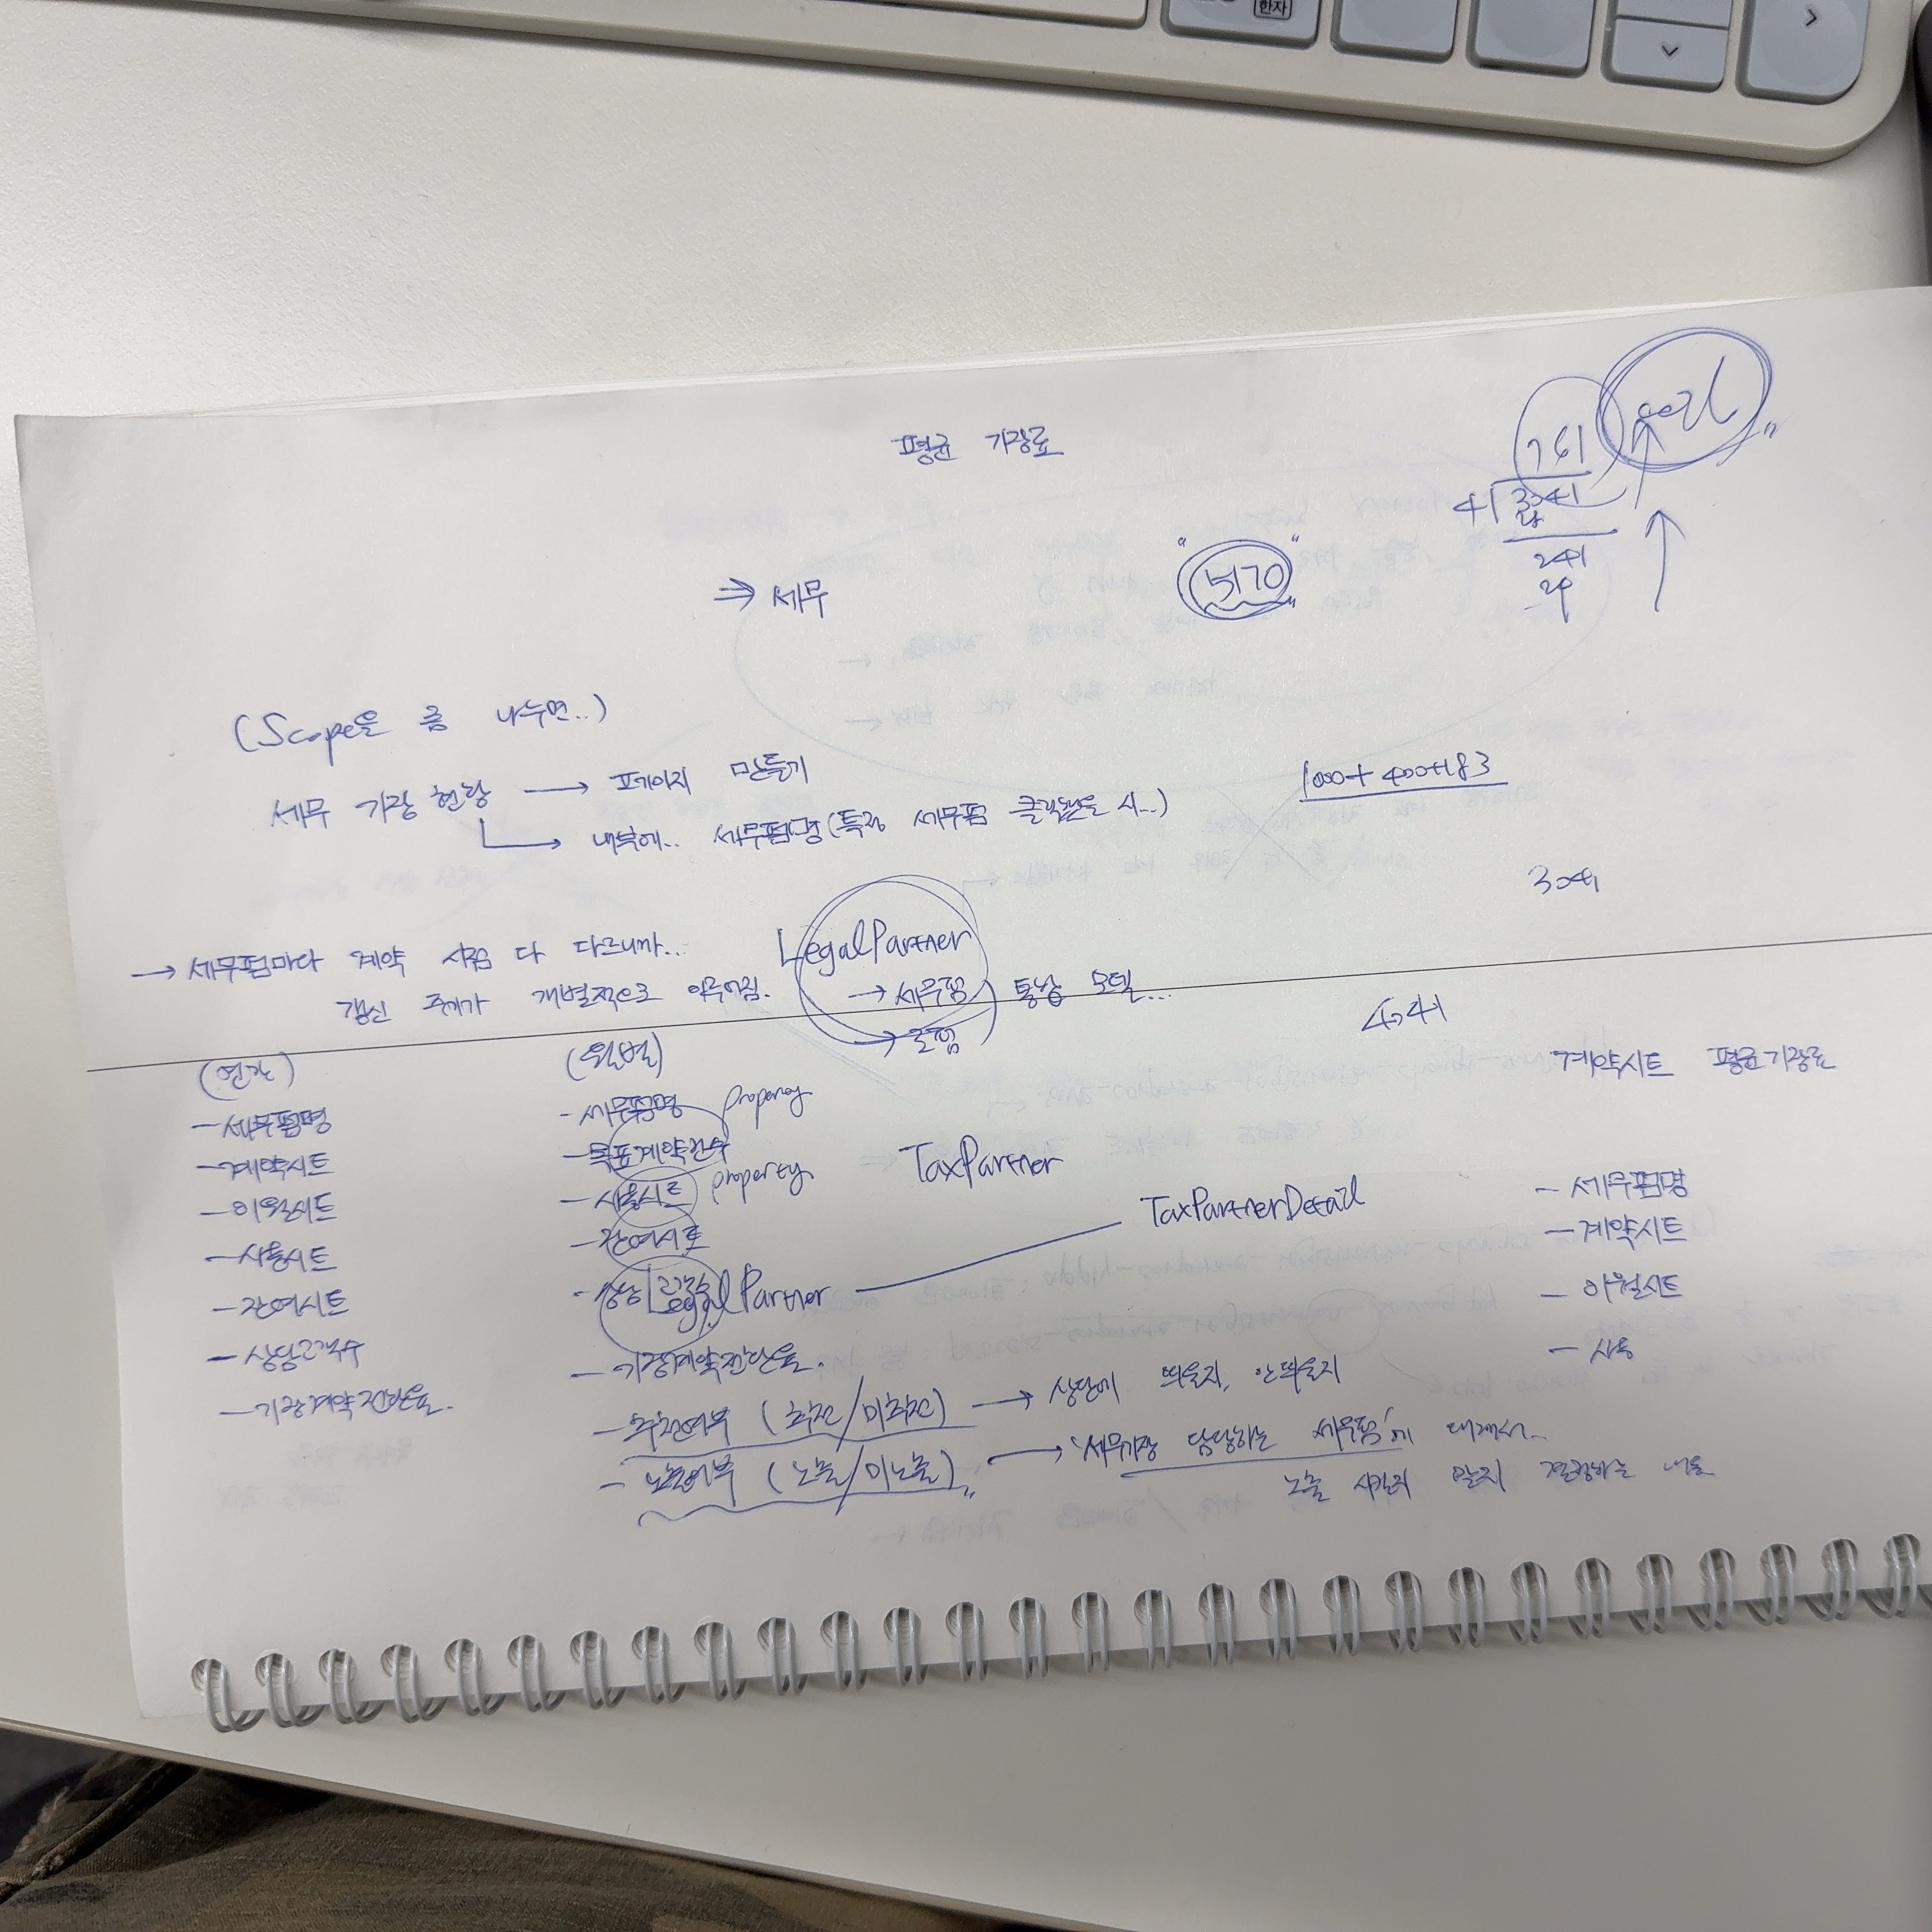 한자
평균 기장료
761
41
3041
241
"5170"
⇒ 세무
(Scope을 좀 나누면..)
세무 기장 현황 → 페이지 만들기
내부에.. 세무펌명(특정 세무펌 클릭했을 시...)
1000+400+183
3041
→ 세무펌마다 계약 시점 다 다르니까...
갱신 주기가 개별적으로 이루어짐.
LegalPartner
→ 세무펌 통상 모델...
→ 로펌
4,41
계약시트 평균기장료
(연간)
- 세무펌명
- 계약시트
- 이월시트
- 사용시트
- 잔여시트
- 상담고객수
- 기장계약전환율.
(월별)
- 세무펌명 property
- 목표계약건수
- 사용시트 property
- 잔여시트
- 상담 LegalPartner
TaxPartner
TaxPartnerDetail
- 기장계약전환율.
- 추천여부 (추천/미추천) → 상단에 띄울지, 안띄울지
- 노출여부 (노출/미노출) → '세무기장 담당하는 세무펌'에 대해서..
노출 시킬지 말지 결정하는 내용
- 세무펌명
- 계약시트
- 이월시트
- 사용